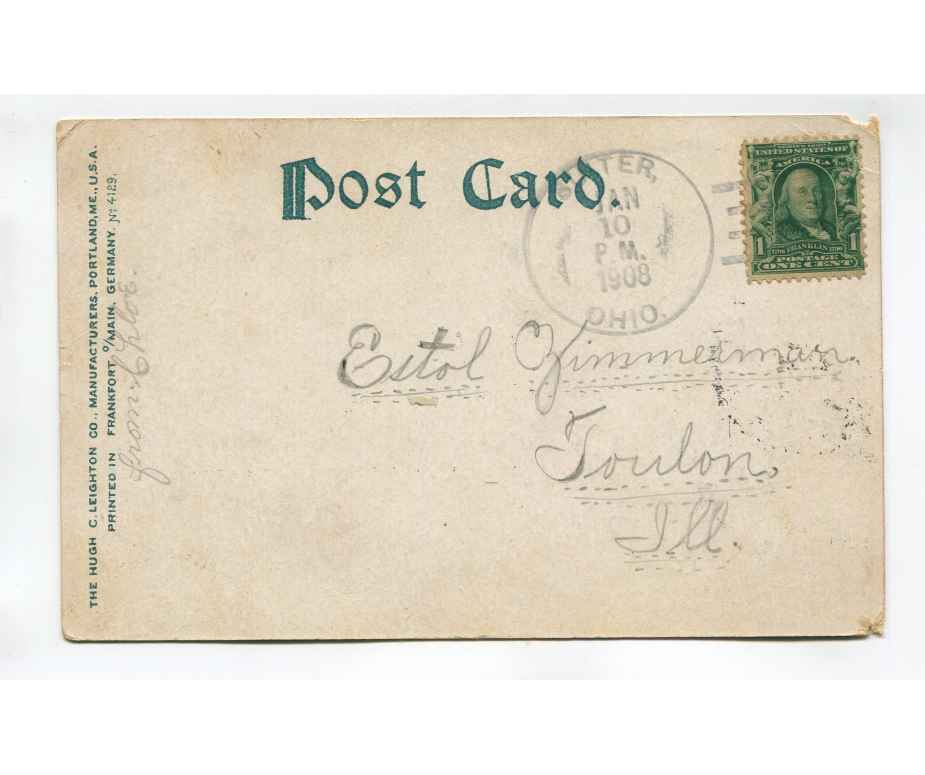 Post Card.
JAN
10
P M.
1908
OHIO.
UNITED STATES OF
AMERICA
1 FRANKLIN 1
POSTAGE
ONE CENT
Estol Zimmerman.
Toulon,
Ill.
from Chloe.
THE HUGH C. LEIGHTON CO., MANUFACTURERS, PORTLAND, ME., U.S.A.
PRINTED IN FRANKFORT o/MAIN, GERMANY. No 4129.